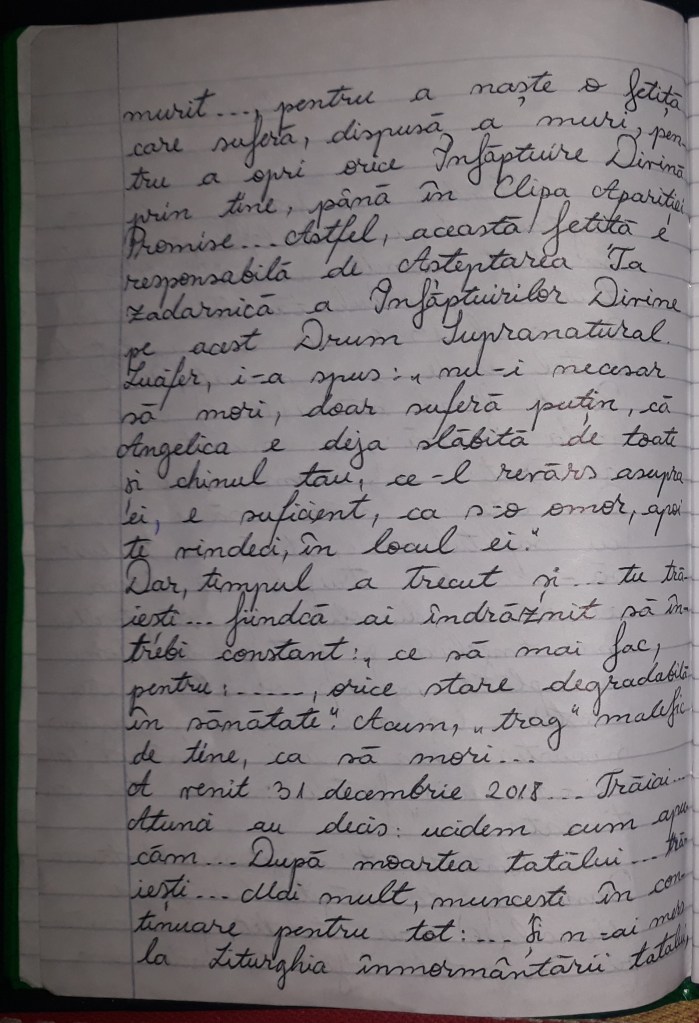 murit..., pentru a naște o fetiță
care suferă, dispusă a muri, pen-
tru a opri orice Înfăptuire Divină
prin tine, până în Clipa Apariției
Promise... Astfel, această fetiță e
responsabilă de Așteptarea Ta
zadarnică a Înfăptuirilor Divine
pe acest Drum Supranatural.
Luäfer, i-a spus: „nu-i necesar
să mori, doar suferă puțin, că
Angelica e deja slăbită de toate
și chinul tău, ce-l revărs asupra
ei, e suficient, ca s-o omor, apoi
te vindeci, în locul ei."
Dar, timpul a trecut și... tu tră-
iești... fiindcă ai îndrăznit să în-
trebi constant: „ce să mai fac,
pentru: ....., orice stare degradabilă
în sănătate". Acum, „trag" malefic
de tine, ca să mori...
A venit 31 decembrie 2018... Trăiai...
Atunci au decis: ucidem cum apu-
căm... După moartea tatălui... tră-
iești... Mai mult, muncești în con-
tinuare pentru tot: ... Și n-ai mers
la Liturghia înmormântării tatălui,